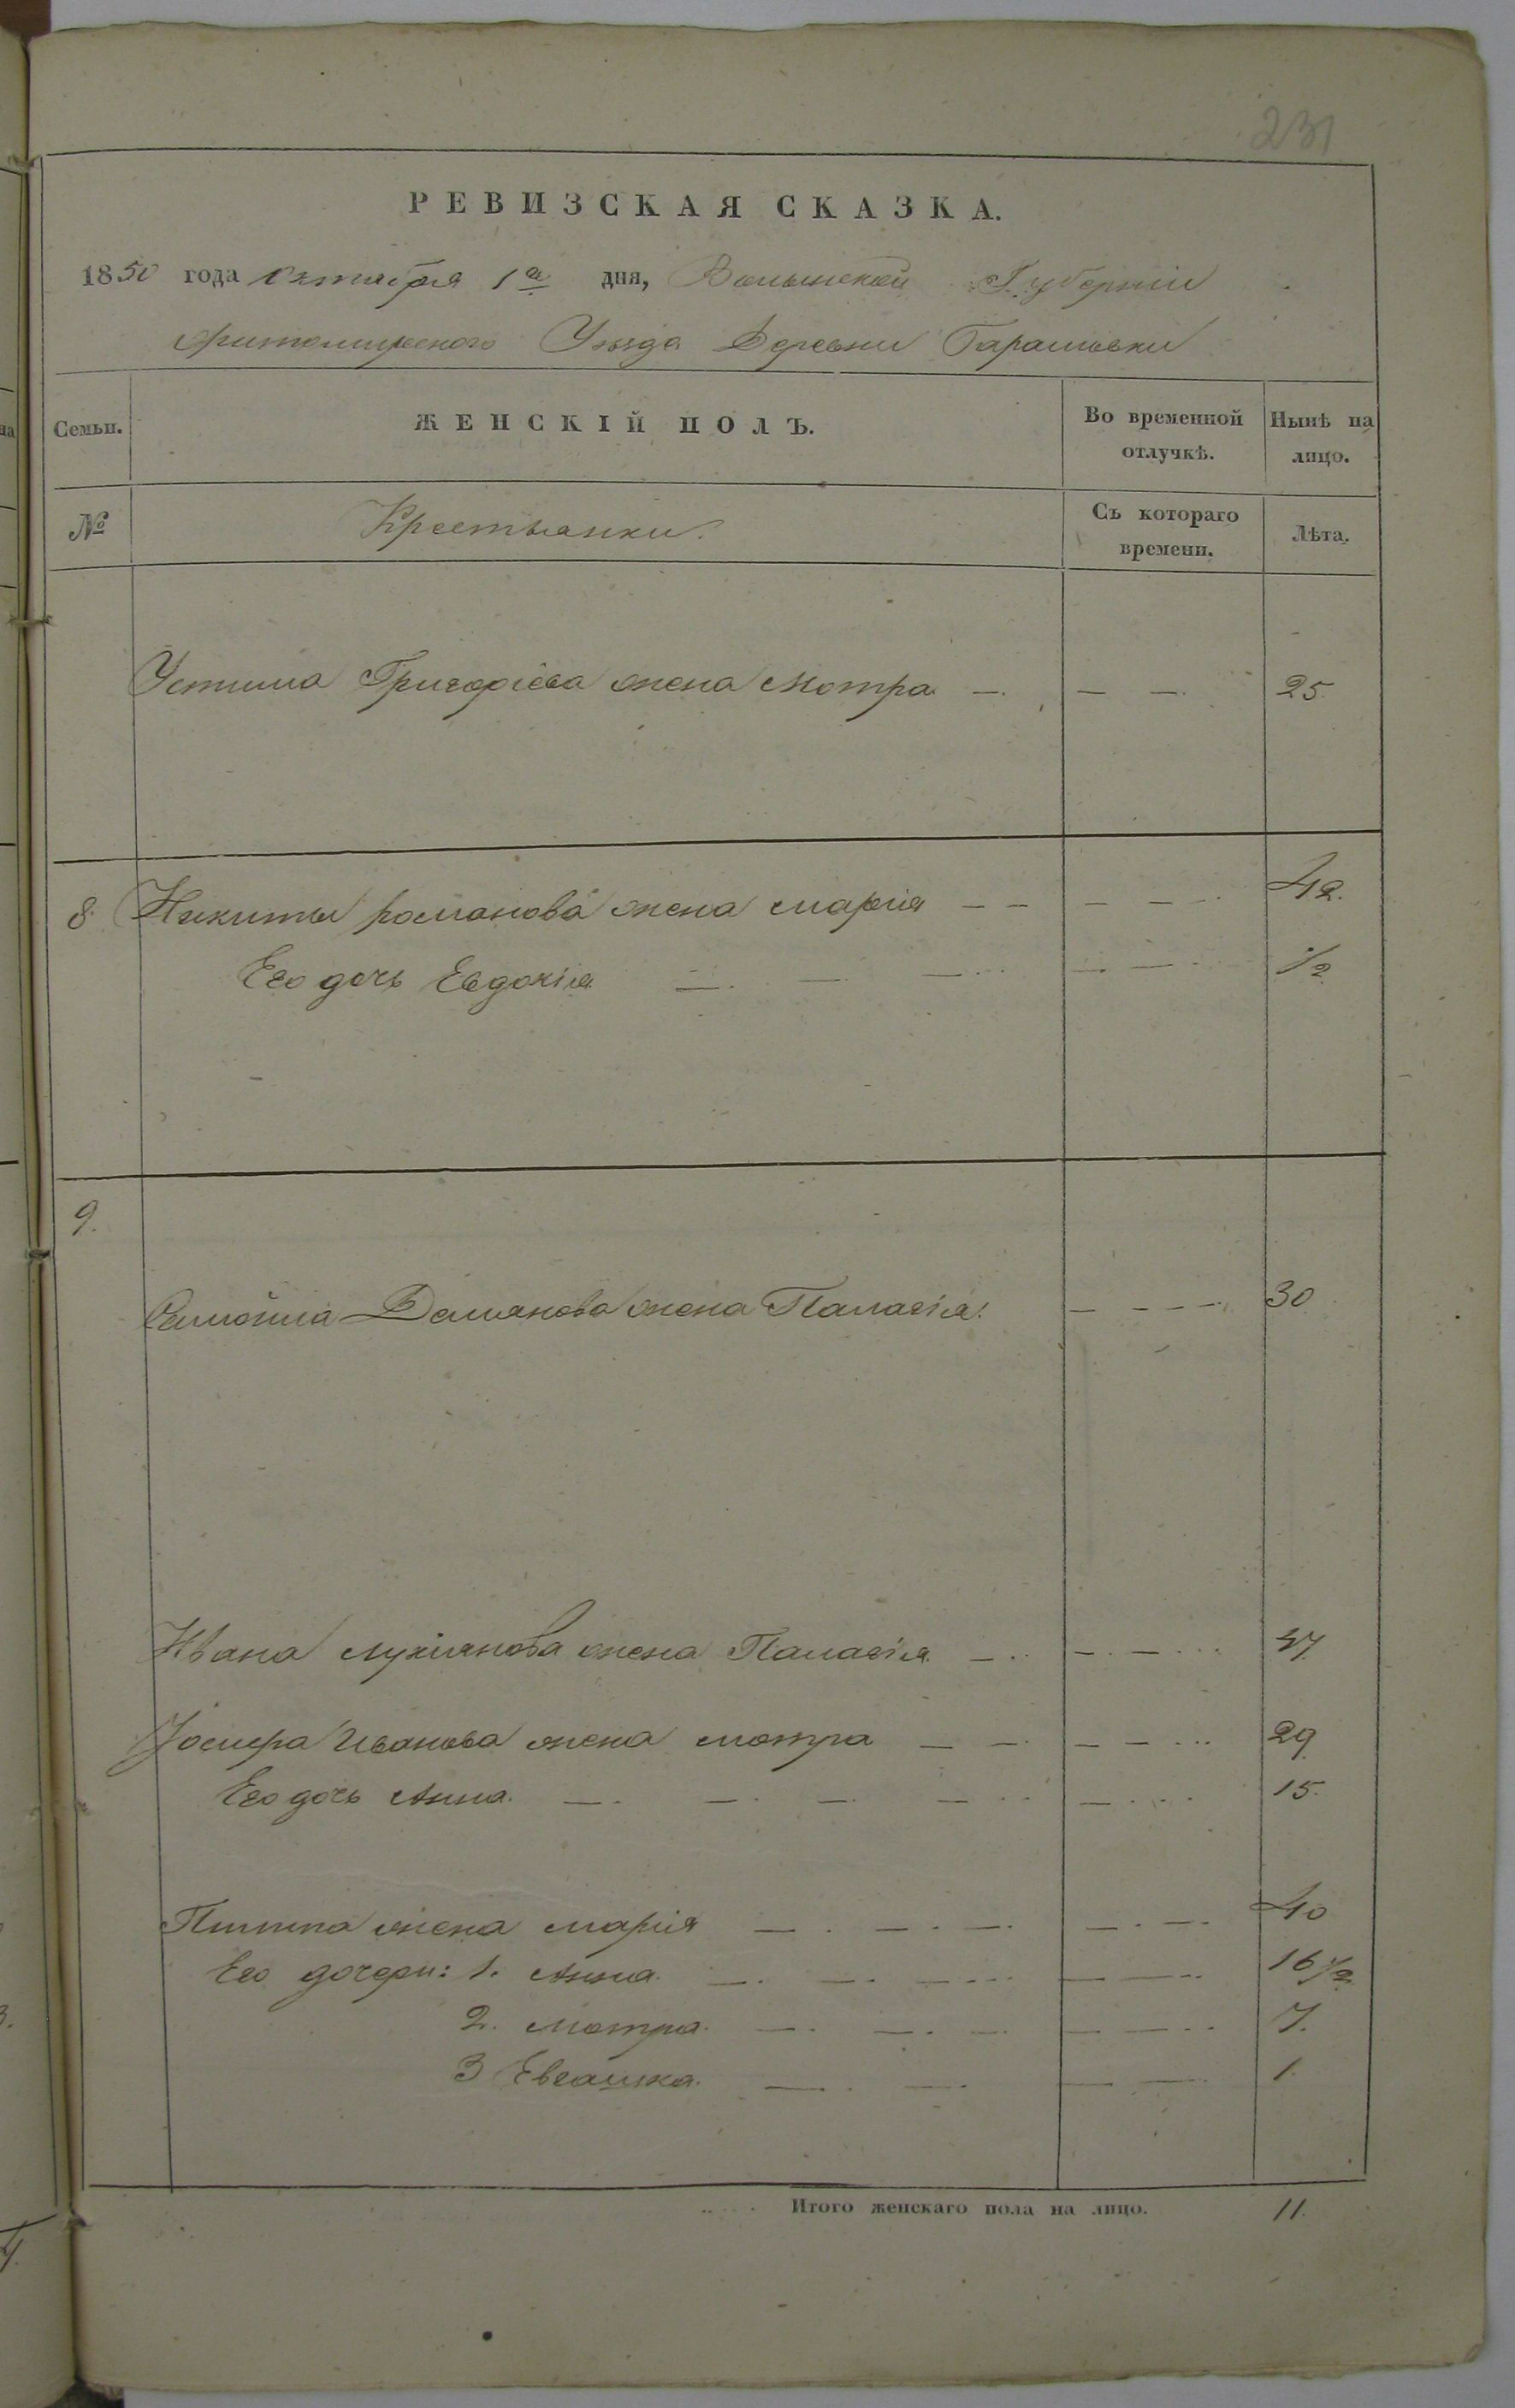 231
РЕВИЗСКАЯ СКАЗКА.
1850 года Октября 1го дня, Волынской Губерніи
Житомирского Уѣзда Деревни Гарашовки
Семьи. ЖЕНСКІЙ ПОЛЪ. Во временной отлучкѣ. Нынѣ на лицо.
№ Крестьянки. Съ котораго времени. Лѣта.
Устима Григоріева жена Мотра — — — 25
8. Никиты Романова жена Марія — — — — 42.
Его дочь Евдокія — — — — — 1/2
9.
Самойла Демянова жена Паласія. — — — — 30
Ивана Лукіянова жена Паласія — — — 47
Іосифа Иванова жена Мотра — — — — 29
Его дочь Анна. — — — — — 15.
Пилипа жена Марія — — — — — 40
Его дочери: 1. Анна. — — — — — 16 1/2
2. Мотра. — — — — — 7.
3 Евгашка. — — — — 1.
Итого женскаго пола на лицо. 11.